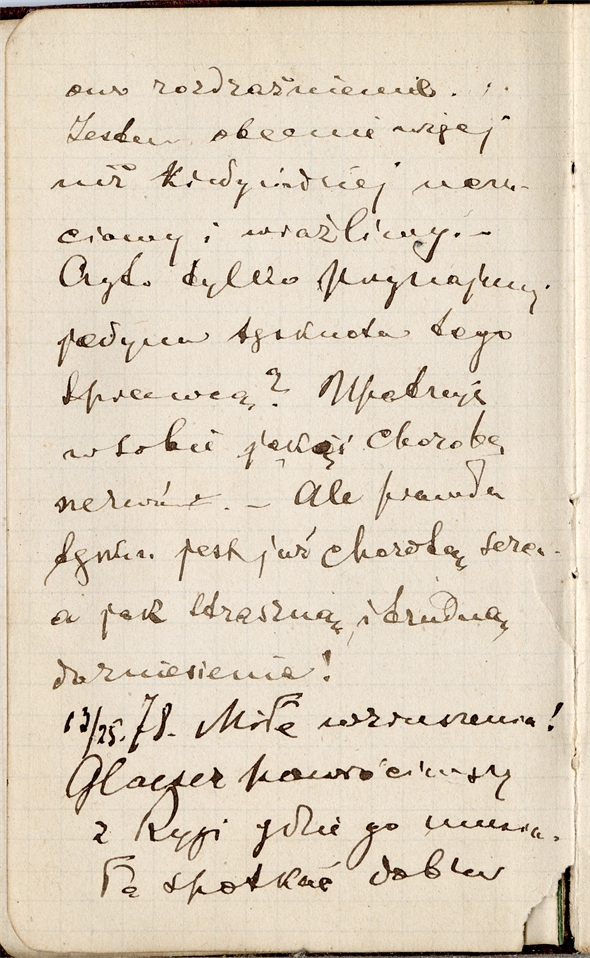 owo rozdrażnienie.
Jestem obecnie więcej
niż kiedyindziej nerw-
ciowy i wrażliwy. -
Czyto tylko
jedyna tęsknota tego
sprawcą? Upatruję
w sobie jakąś chorobę
nerwów. - Ale prawda
tęsknota jest już chorobą serca
a jak straszną i trudną
do zniesienia!
13/25. 78. Miłe wzruszenia!
Glaeser powróciwszy
z Rygi gdzie go musia-
ła spotkać dobra